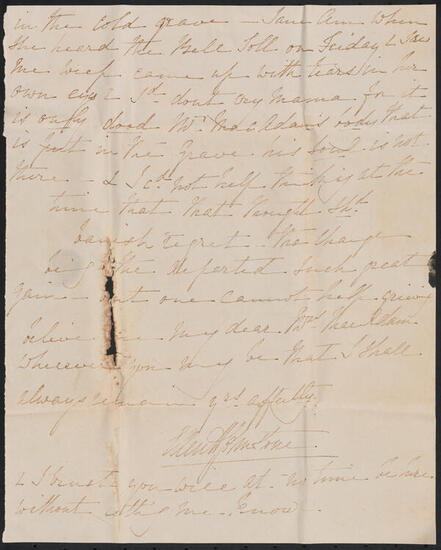 in the cold grave – Jane Ann when
she heard the Bell Toll on Friday & saw
me weep came up with tears in her
own eyes & sd. dont cry Mama, for it
is only good Mr. MacAdam's body that
is put in the Grave his soul is not
there – & I cd. not help thinking at the
time that that thought shd.
banish regret. The change
being to the departed such great
gain – but one cannot help grieving
believe me my dear Mrs. MacAdam
wherever you may be that I shall
always remain yrs. affectly.
Johnstone
& I trust you will at no time be here
without letting me know